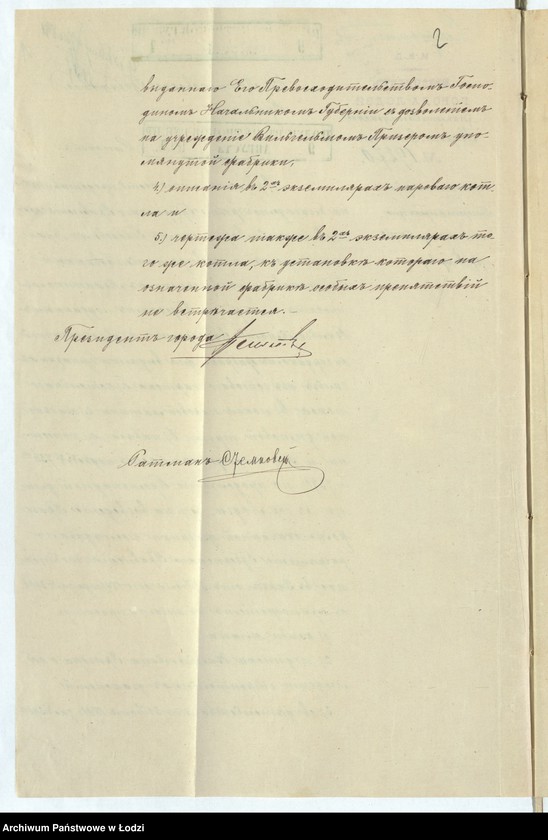 2
выданнаго Его Превосходительствомъ Госпо-
диномъ Начальникомъ Губерніи въ дозволеніемъ
на учрежденіе Вильгельмомъ Прицеромъ упо-
мянутой фабрики,
4) описанія въ 2хъ экземплярахъ пароваго кот-
ла и
5) чертежа также въ 2хъ экземплярахъ то-
го же котла, къ установкѣ котораго на
означенной фабрикѣ особыхъ препятствій
не встрѣчается. –
Президентъ города
Ратманъ
Archiwum Państwowe w Łodzi